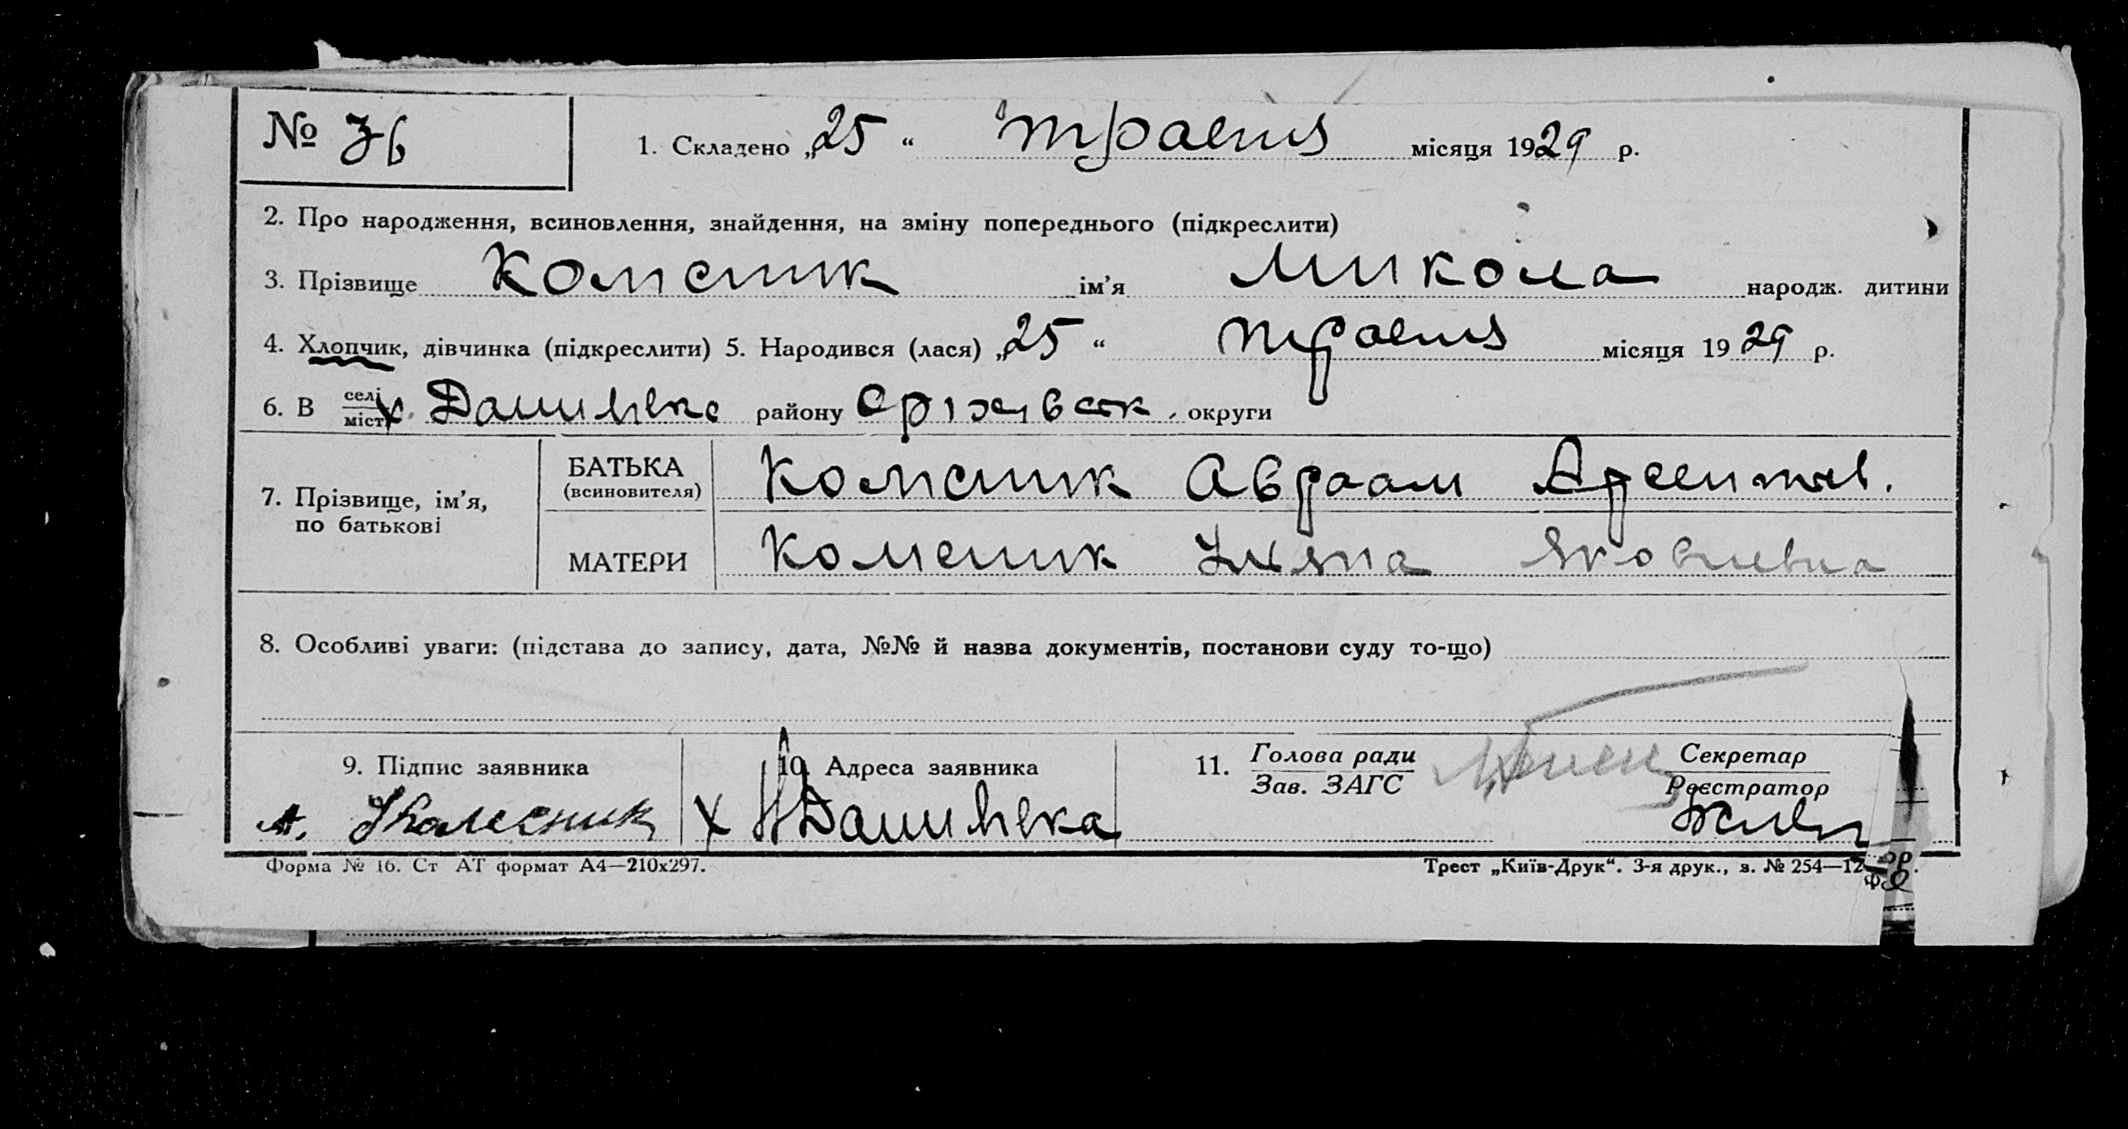 № 36 1. Складено „25“ травня місяця 1929 р.
2. Про народження, всиновлення, знайдення, на зміну попереднього (підкреслити)
3. Прізвище Колісник ім’я Микола народж. дитини
4. Хлопчик, дівчинка (підкреслити) 5. Народився (лася) „25“ травня місяця 1929 р.
6. В селі міст х. району Оржівськ. округи
7. Прізвище, ім’я, по батькові
БАТЬКА (всиновителя) Колесник Авраам
МАТЕРИ Колесник Уляна Яковлевна
8. Особливі уваги: (підстава до запису, дата, №№ й назва документів, постанови суду то-що)
9. Підпис заявника 10. Адреса заявника 11. Голова ради Зав. ЗАГС Секретар Реєстратор
А. Колесник х
Форма № 16. Ст АТ формат А4—210х297. Трест „Київ-Друк“. 3-я друк., з. № 254—12